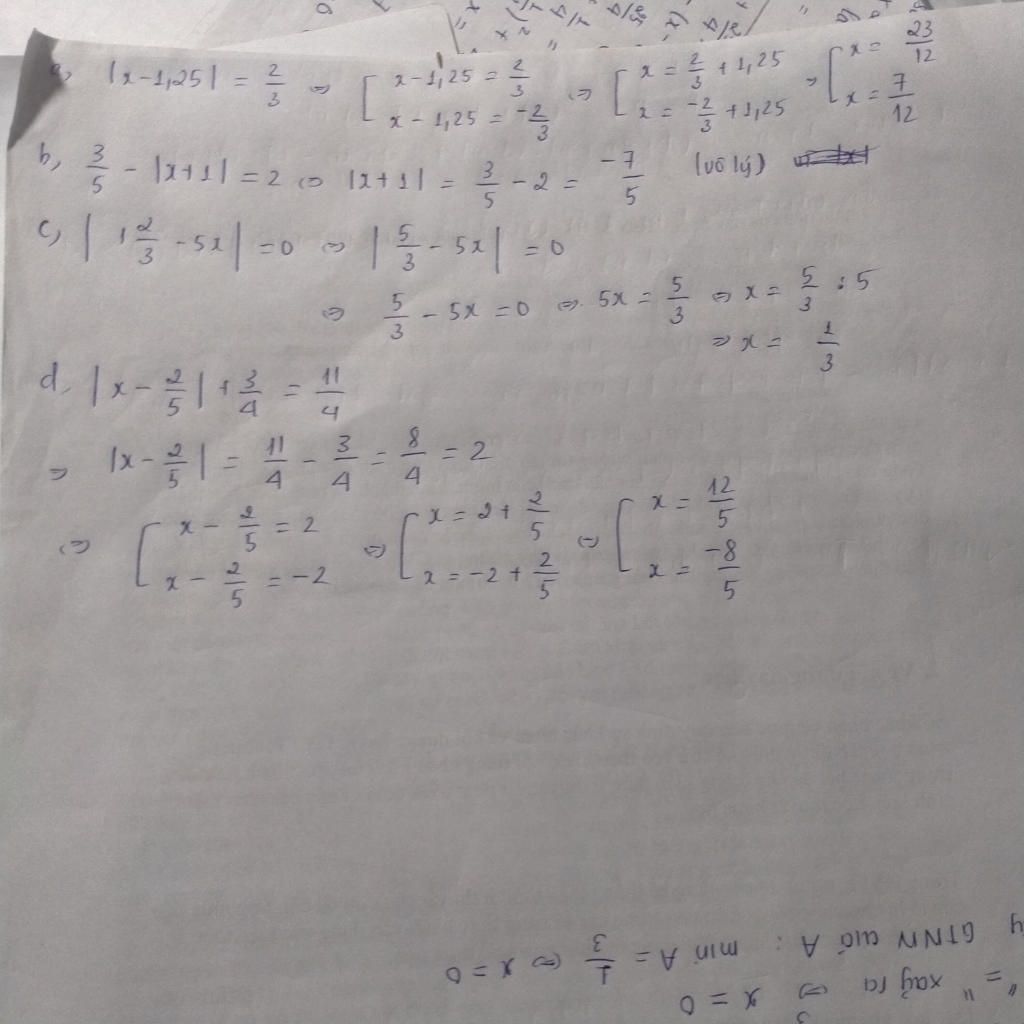 a, |x-1,25| = 2/3 => [ x-1,25 = 2/3 ; x-1,25 = -2/3 <=> [ x = 2/3 + 1,25 ; x = -2/3 + 1,25 => [ x = 23/12 ; x = 7/12
b, 3/5 - |x+1| = 2 <=> |x+1| = 3/5 - 2 = -7/5 (vô lý)
c, | 1 2/3 - 5x | = 0 <=> | 5/3 - 5x | = 0
<=> 5/3 - 5x = 0 <=> 5x = 5/3 <=> x = 5/3 : 5
=> x = 1/3
d, |x - 2/5| + 3/4 = 11/4
=> |x - 2/5| = 11/4 - 3/4 = 8/4 = 2
<=> [ x - 2/5 = 2 ; x - 2/5 = -2 <=> [ x = 2 + 2/5 ; x = -2 + 2/5 <=> [ x = 12/5 ; x = -8/5
"=" xảy ra <=> x = 0
GTNN của A : min A = 1/3 <=> x = 0